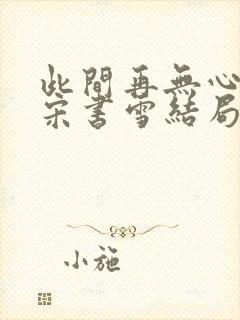 此間再無心
宋書雪結局
小施